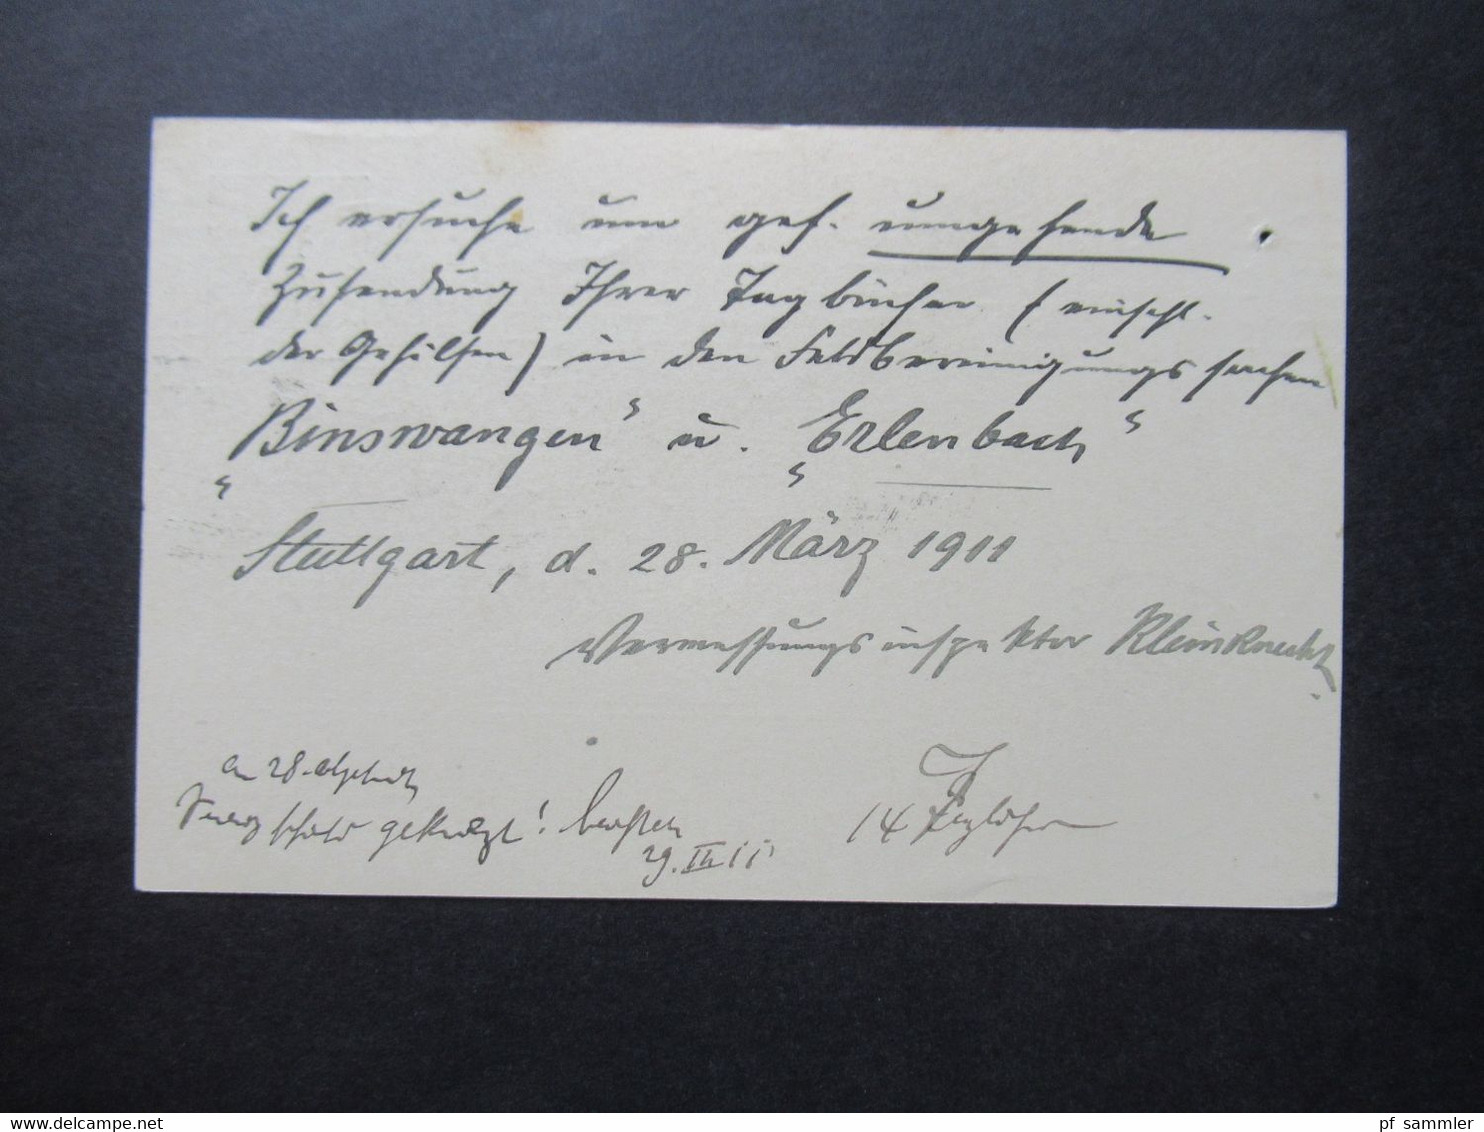 Ich ersuche um gef. umgehende
Zusendung Ihrer Tagbücher (einschl.
der Gehülfen) in den Feldbereinigungssachen
„Binswangen“ u. „Erlenbach“
Stuttgart, d. 28. März 1911
Vermessungsinspektor Kleinknecht.
28.
29. III 11
14
www.delcampe.net
pf_sammler